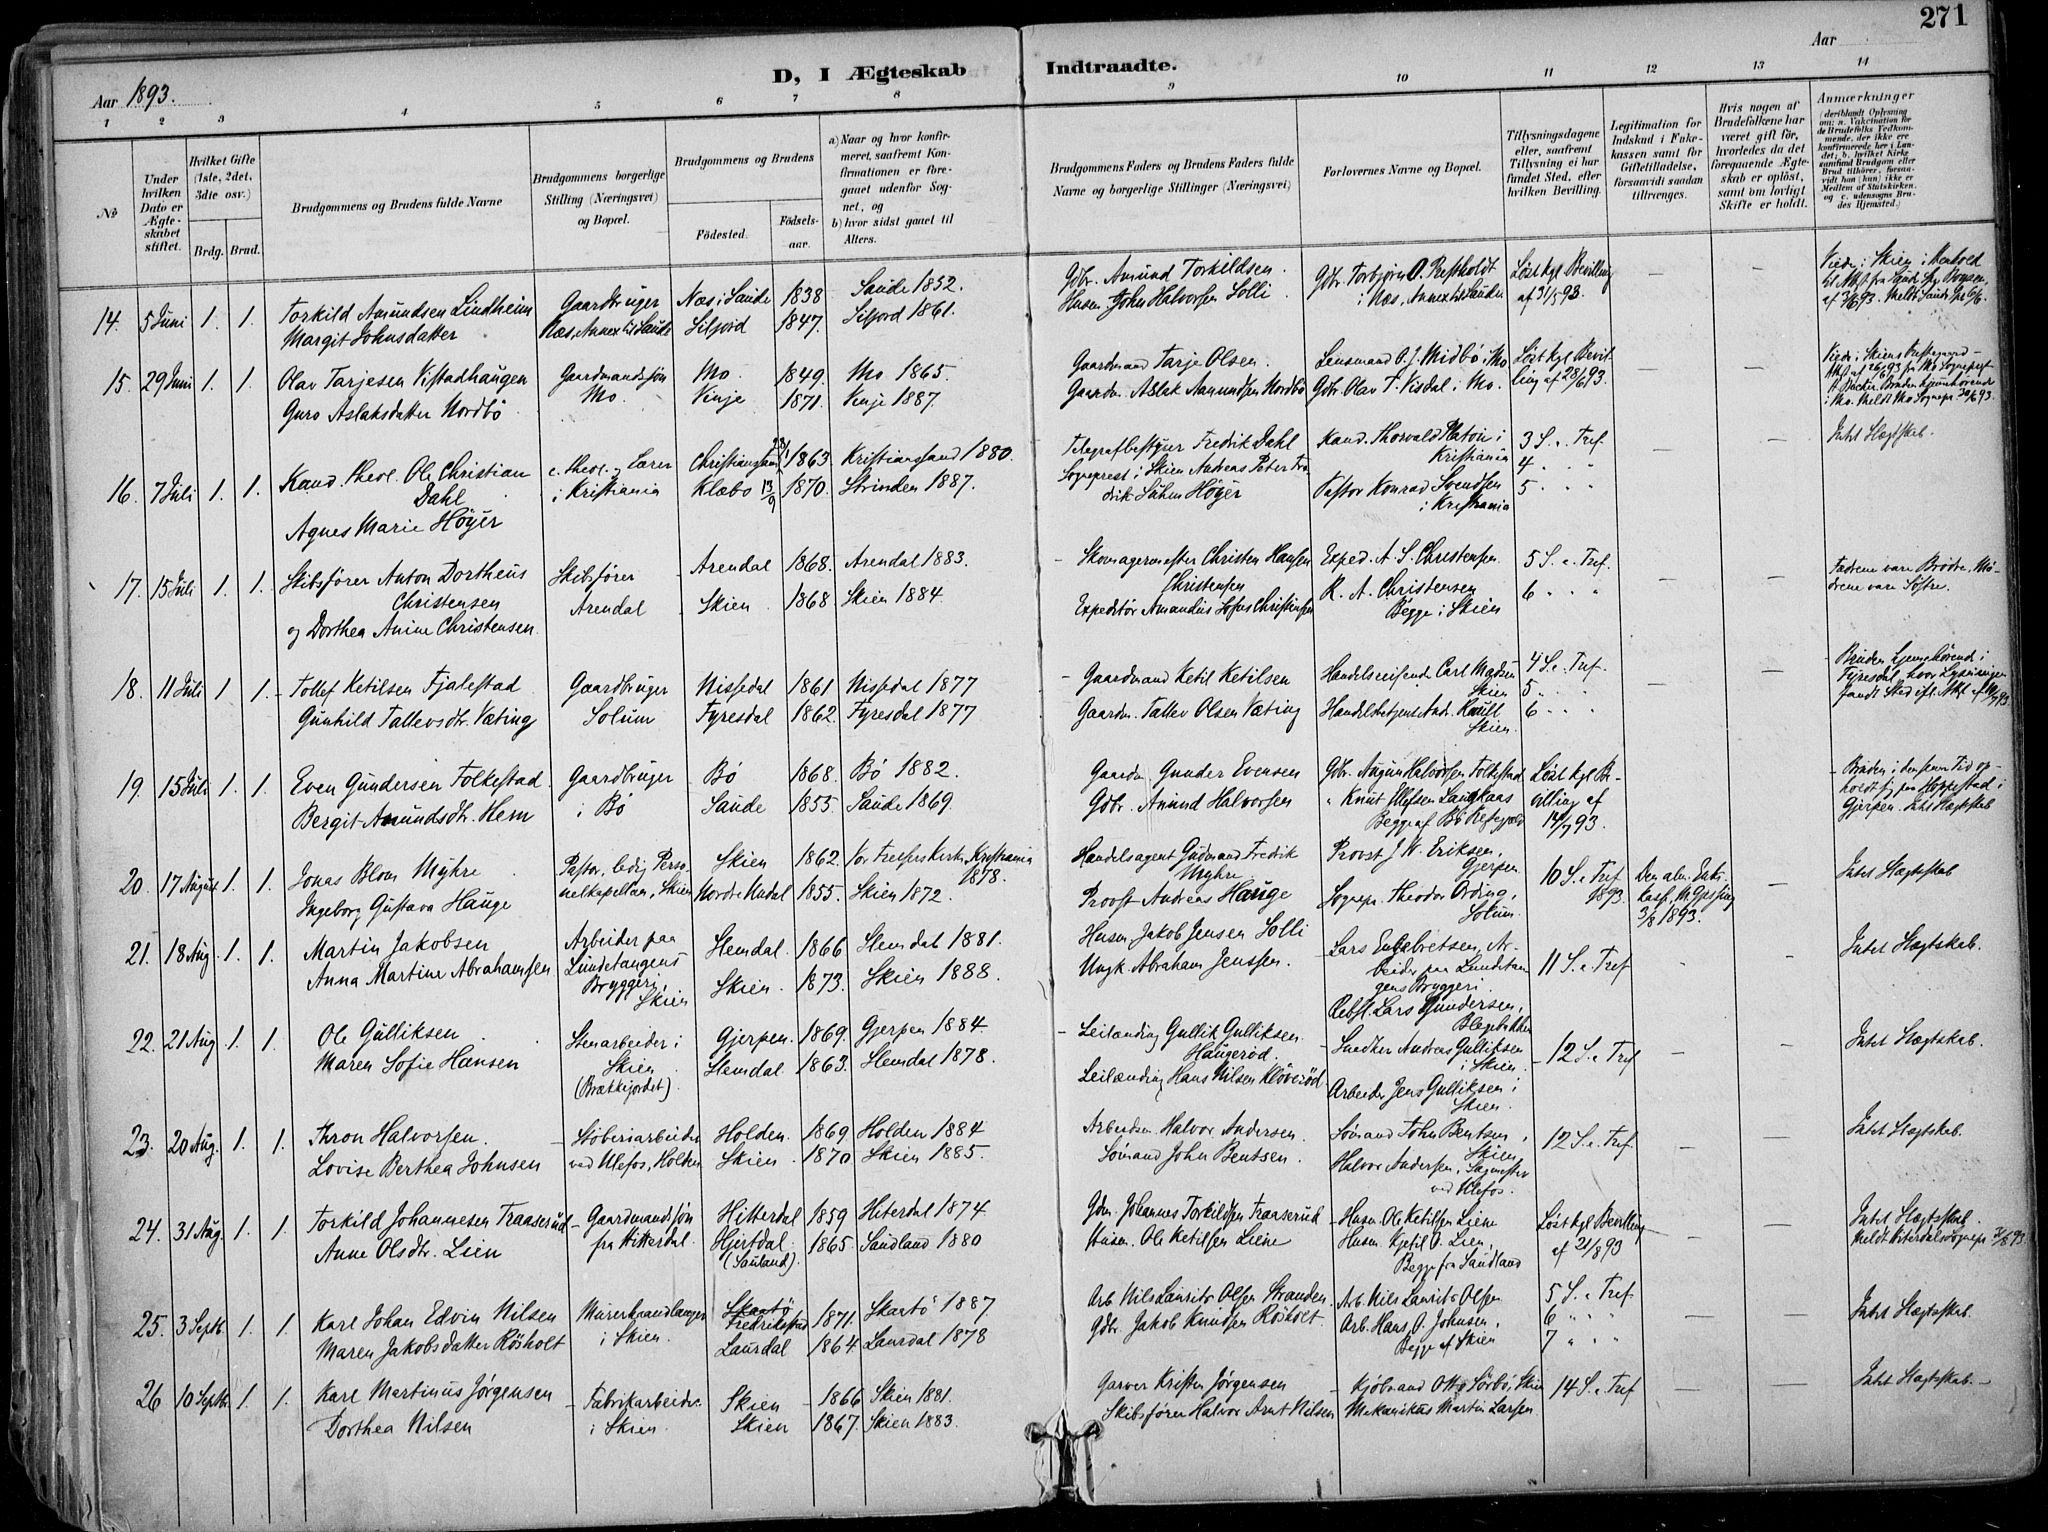 271
D, I Ægteskab Indtraadte.
Aar 1893.
Aar
1 2 3 4 5 6 7 8 9 10 11 12 13 14
No
Under hvilken Dato er Ægteskabet stiftet.
Hvilket Gifte (1ste, 2det, 3die osv.)
Brdg. Brud.
Brudgommens og Brudens fulde Navne
Brudgommens borgerlige Stilling (Næringsvei) og Bopæl.
Brudgommens og Brudens
Fødested. Fødselsaar.
a) Naar og hvor konfirmeret, saafremt Konfirmationen er foregaaet udenfor Sognet, og
b) hvor sidst gaaet til Alters.
Brudgommens Faders og Brudens Faders fulde Navne og borgerlige Stillinger (Næringsvei)
Forlovernes Navne og Bopæl.
Tillysningsdagene eller, saafremt Tillysning ei har fundet Sted, efter hvilken Bevilling.
Legitimation for Indskud i Enkekassen samt for Giftetilladelse, forsaavidt saadan tiltrænges.
Hvis nogen af Brudefolkene har været gift før, hvorledes da det foregaaende Ægteskab er opløst, samt om lovligt Skifte er holdt.
Anmærkninger
14. 5 Juni 1. 1. Torkild Amundsen Lindheim Gaardbruger Næs i Saude 1838 Saude 1852. Gdbr. Amund Torkildsen Gdbr. Torbjørn O. Løst kgl Bevilling
Margit Johnsdatter Næs, Annex til Saude Siljord 1847. Siljord 1861. Husm. John Halvorsen Solli i Næs, Annex til Saude af 31/5 93.
15. 29 Juni 1. 1. Olav Tarjesen Vistadhaugen Gaardmandssøn Mo 1849. Mo 1865. Gaardmand Tarje Olsen Lensmand O. J. Midbö i Mo Løst kgl Bevil
Guro Aslaksdatter Nordbö Mo. Vinje 1871. Vinje 1887. Gaardm. Aslak Aamundsen Nordbö Gdbr. Olav T. Visdal i Mo. ling af 28/6 93.
16. 7 Juli 1. 1. Kand. theol. Ole Christian Dahl c. theol. og Lærer Christianssand 1863 Kristianssand 1880. Telegrafbestyrer Fredrik Dahl Kand. Thorvald Platou i Kristiania 3 S. e. Tref Intet Slægtskab.
Agnes Marie Höyer i Kristiania Klæbo 13/9 1870. Strinden 1887. Sogneprest i Skien Andreas Peter Fredrik Suhm Höyer Pastor Konrad Svendsen i Kristiania 4 " " 5 " "
17. 15 Juli 1. 1. Skibsfører Anton Dortheus Christensen Skibsfører Arendal 1868. Arendal 1883. Skomagermester Christen Hansen Christensen Exped. A. S. Christensen 5 S. e. Tref. Fædrene vare Brödre, Mö-
og Dorthea Anine Christensen Arendal Skien 1868 Skien 1884. Expeditör Amandus Sofus Christensen R. A. Christensen Begge i Skien 6 " " drene vare Söstre.
18. 11 Juli 1 1. Tollef Ketilsen Fjalestad Gaardbruger Nissedal 1861 Nissedal 1877 Gaardmand Ketil Ketilsen Handelsreisende Carl Madsen Skien 4 S. e. Tref. Bruden hjemmehørende i
Gunhild Tallevsdtr. Væting Solum Fyresdal 1862. Fyresdal 1877 Gaardm. Tallev Olsen Væting Handelsbetjent Skien. 5 " " 6 " " Fyresdal, hvor Lysningen
19. 15 Juli 1. 1. Even Gundersen Folkestad Gaardbruger Bö 1868. Bö 1882. Gaardm Gunder Evensen Gdbr. Augun Halvorsen Folkestad Løst kgl Be-
Bergit Amundsdtr. Hem i Bö Saude 1855 Saude 1869. Gdbr. Amund Halvorsen " Knut Ellefsen Langkaas villing af 14/7 93.
Bruden i den senere Tid op- holdt sig paa Hoppestad i Gjerpen. Intet Slægtskab
20. 17 August 1. 1. Jonas Blom Myhre Pastor, ledig Perso- Skien 1862. Vor Frelsers Kirke, Kristiania 1878. Handelsagent Gudmund Fredrik Myhre Provst J. W. Eriksen, Gjerpen 10 S. e. Tref 1893. Intet Slægtskab
Ingeborg Gustava Hauge nelkapellan, Skien Nordre Undal 1855. Skien 1872. Provst Andreas Hauge Sognepr. Theodor Ording, Solum. 3/8 1893.
21. 18 Aug. 1. 1. Martin Jakobsen Arbeider paa Slemdal 1866 Slemdal 1881. Husm. Jakob Jensen Solli Lars Engebretsen, Ar- 11 S. e Tref Intet Slægtskab.
Anna Martine Abrahamsen Lundetangens Bryggeri, Skien Skien. 1873. Skien 1888. Ungk. Abraham Jenssen. beider paa Lundetan gens Bryggeri. Lars Gundersen, Blegebakken
22. 21 Aug. 1. 1. Ole Gulliksen Stenarbeider i Gjerpen. 1869. Gjerpen 1884. Leilænding Gullik Gulliksen Haugerød. Snedker Andreas Gulliksen i Skien. 12 S. e. Tref Intet Slægtskab.
Maren Sofie Hansen Skien (Brækkejordet). Slemdal 1863. Slemdal 1878. Leilænding Hans Nilsen Kløveröd Arbeider Jens Gulliksen i Skien.
23. 20 Aug. 1. 1. Thron Halvorsen Støberiarbeider Holden. 1869. Holden 1884 Arbeidsm. Halvor Andersen. Sømand John Bentsen, Skien 12 S. e. Tref. Intet Slægtskab.
Lovise Berthea Johnsen ved Ulefos, Holden Skien. 1870 Skien 1885. Sømand John Bentsen. Halvor Andersen, Sagmester ved Ulefos.
24. 31 Aug 1. 1. Torkild Johannesen Traaserud Gaardmandssøn Hitterdal 1859 Hiterdal 1874 Gdm. Johannes Torkildsen Traaserud Husm. Ole Ketilsen Liene Løst kgl Bevilling Intet Slægtskab.
Anne Olsdtr. Lien fra Hitterdal. Hjertdal. (Sauland). 1865. Sandland 1880 Husm. Ole Ketilsen Liene Husm. Kjetil O. Lien, Begge fra Sandland af 21/8 93
25. 3 Septb. 1. 1. Karl Johan Edvin Nilsen Murerhaandlanger Skaatö Fredrikstad 1871. Skaatö 1887 Arb. Nils Laurits Olsen Stranden. Arb. Nils Laurits Olsen 5 S. e Tref Intet Slægtskab.
Maren Jakobsdatter Rösholt i Skien. Laurdal 1864 Laurdal 1878 Gdbr. Jakob Knudsen Rösholt. Arb. Hans O. Johnsen, Begge af Skien 6 " " 7 " "
26 10 Septb. 1. 1. Karl Martinus Jörgensen Fabrikarbeider Skien 1866 Skien 1881. Garver Kristen Jörgensen Kjöbmand Otto Sörbö, Skien 14 S. e Tref Intet Slægtskab.
Dorthea Nilsen i Skien. Skien 1867. Skien 1883. Skibsfører Halvor Arnt Nilsen Mekanikus Martin Larsen